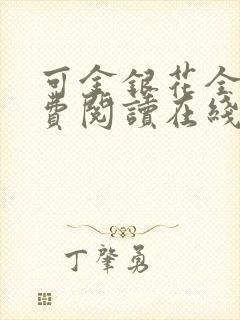 可金銀花全
費閱讀在綫
丁肇勇